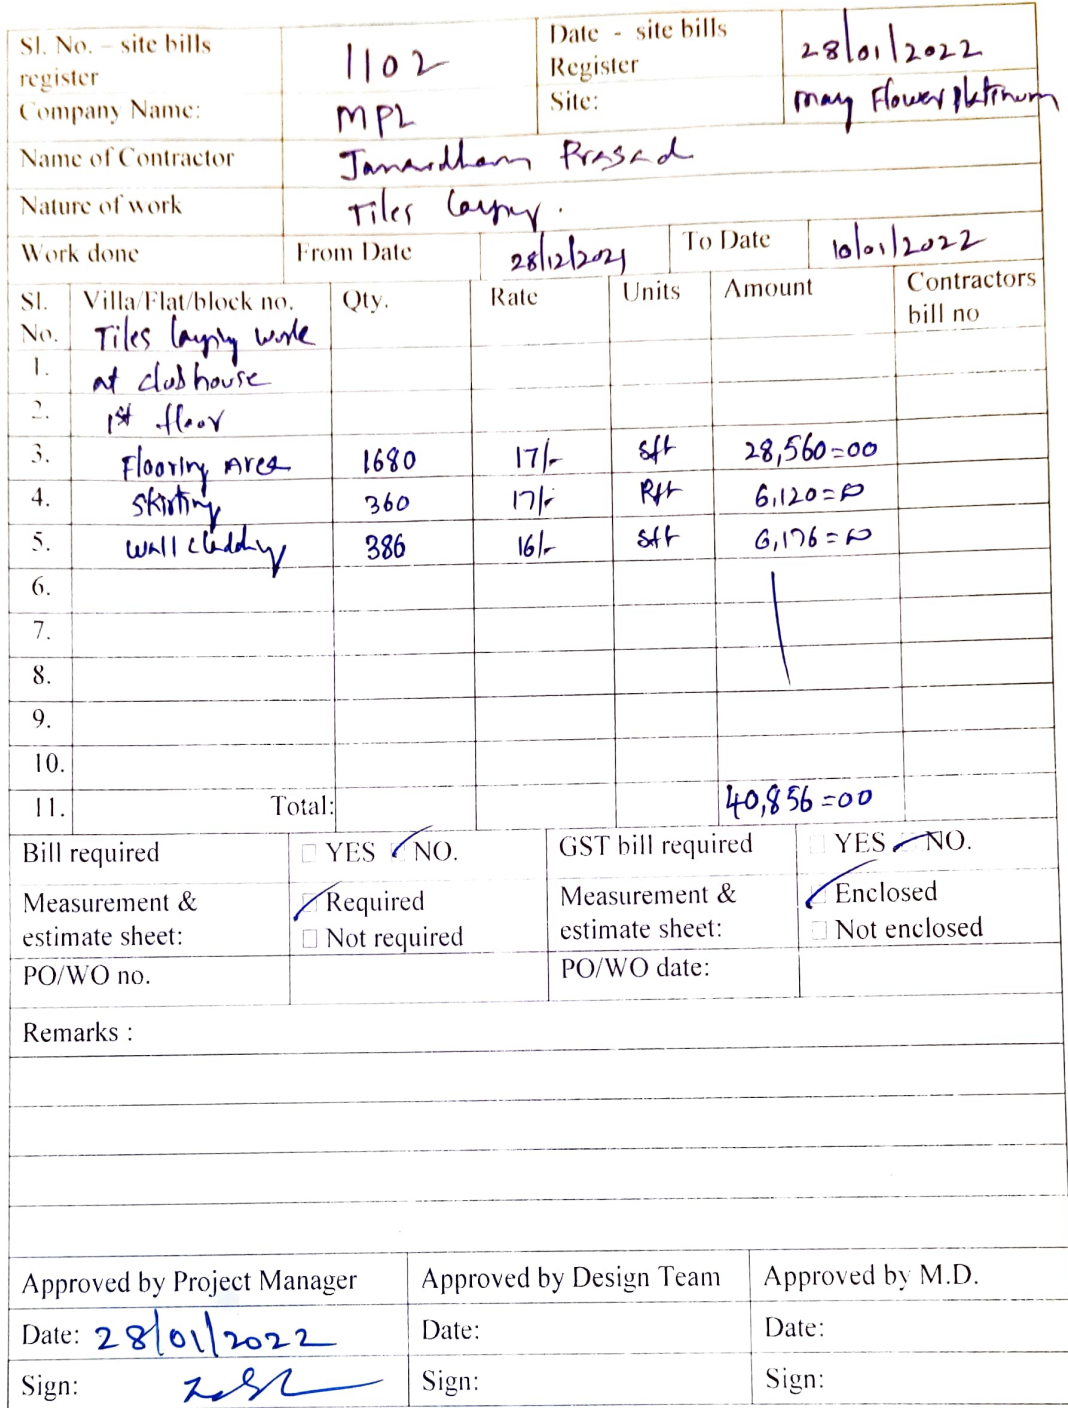 Sl. No. – site bills register 1102 Date - site bills Register 28/01/2022
Company Name: MPL Site: may Flower platinum
Name of Contractor Janardhan Prasad
Nature of work Tiles laying.
Work done From Date 28/12/2021 To Date 10/01/2022
Sl. No. Villa/Flat/block no. Qty. Rate Units Amount Contractors bill no
Tiles laying work
1. at clubhouse
2. 1st floor
3. Flooring Area 1680 17/- sft 28,560=00
4. Skirting 360 17/- Rft 6,120=00
5. wall cladding 386 16/- sft 6,176=00
6.
7.
8.
9.
10.
11. Total: 40,856=00
Bill required YES NO. GST bill required YES NO.
Measurement & estimate sheet: Required Measurement & estimate sheet: Enclosed
Not required Not enclosed
PO/WO no. PO/WO date:
Remarks :
Approved by Project Manager Approved by Design Team Approved by M.D.
Date: 28/01/2022 Date: Date:
Sign: Sign: Sign: